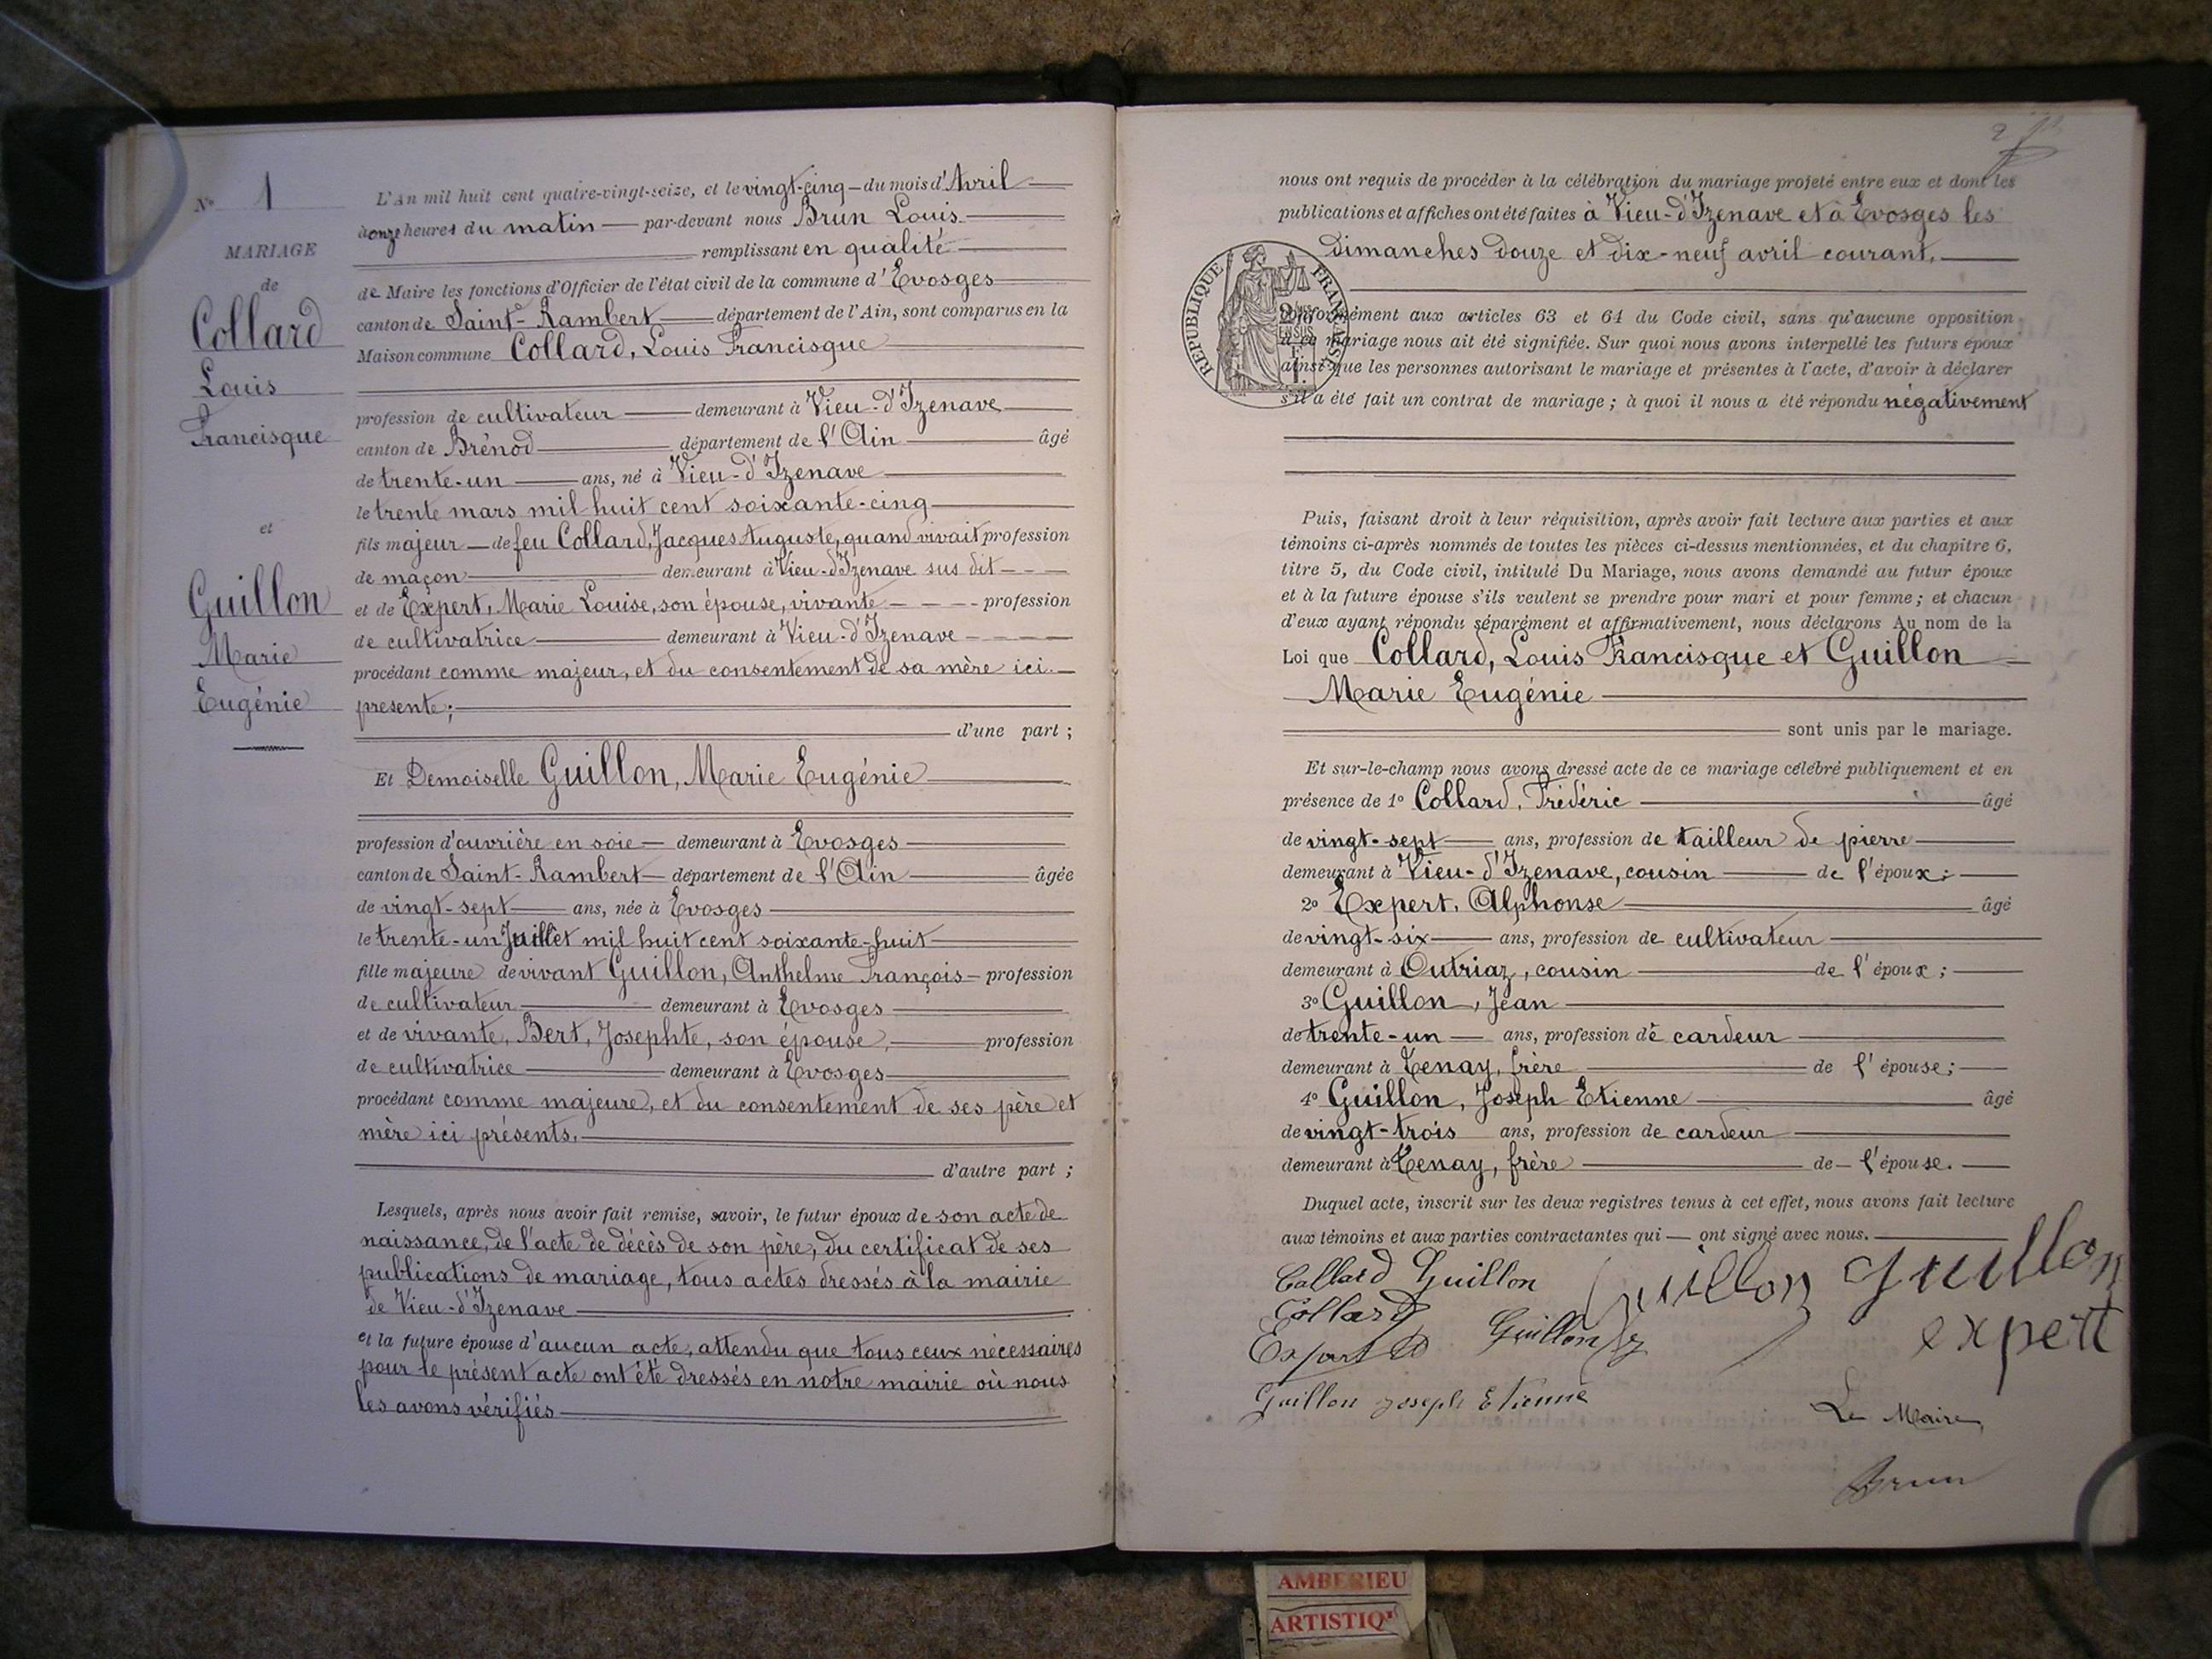 N° 1
MARIAGE
de
Collard
Louis
Francisque
et
Guillon
Marie
Eugénie
L'An mil huit cent quatre-vingt-seize, et le vingt-cinq du mois d'Avril
à onze heures du matin par-devant nous Brun Louis
remplissant en qualité
de Maire les fonctions d'Officier de l'état civil de la commune d'Evosges
canton de Saint-Rambert département de l'Ain, sont comparus en la
Maison commune Collard, Louis Francisque
profession de cultivateur demeurant à Vieu-d'Izenave
canton de Brénod département de l'Ain âgé
de trente-un ans, né à Vieu-d'Izenave
le trente mars mil huit cent soixante-cinq
fils majeur de feu Collard, Jacques Auguste, quand vivait profession
de maçon demeurant à Vieu-d'Izenave sus dit
et de Expert, Marie Louise, son épouse, vivante profession
de cultivatrice demeurant à Vieu-d'Izenave
procédant comme majeur, et du consentement de sa mère ici
presente;
d'une part ;
Et Demoiselle Guillon, Marie Eugénie
profession d'ouvrière en soie demeurant à Evosges
canton de Saint-Rambert département de l'Ain âgée
de vingt-sept ans, née à Evosges
le trente-un Juillet mil huit cent soixante-huit
fille majeure de vivant Guillon, Anthelme François profession
de cultivateur demeurant à Evosges
et de vivante, Bert, Josephte, son épouse, profession
de cultivatrice demeurant à Evosges
procédant comme majeure, et du consentement de ses père et
mère ici présents.
d'autre part ;
Lesquels, après nous avoir fait remise, savoir, le futur époux de son acte de
naissance, de l'acte de décès de son père, du certificat de ses
publications de mariage, tous actes dressés à la mairie
de Vieu-d'Izenave
et la future épouse d'aucun acte, attendu que tous ceux nécessaires
pour le présent acte ont été dressés en notre mairie où nous
les avons vérifiés
2
nous ont requis de procéder à la célébration du mariage projeté entre eux et dont les
publications et affiches ont été faites à Vieu-d'Izenave et à Evosges les
dimanches douze et dix-neuf avril courant,
REPUBLIQUE FRANÇAISE
conformément aux articles 63 et 64 du Code civil, sans qu'aucune opposition
à ce mariage nous ait été signifiée. Sur quoi nous avons interpellé les futurs époux
ainsi que les personnes autorisant le mariage et présentes à l'acte, d'avoir à déclarer
s'il a été fait un contrat de mariage ; à quoi il nous a été répondu négativement
Puis, faisant droit à leur réquisition, après avoir fait lecture aux parties et aux
témoins ci-après nommés de toutes les pièces ci-dessus mentionnées, et du chapitre 6,
titre 5, du Code civil, intitulé Du Mariage, nous avons demandé au futur époux
et à la future épouse s'ils veulent se prendre pour mari et pour femme ; et chacun
d'eux ayant répondu séparément et affirmativement, nous déclarons Au nom de la
Loi que Collard, Louis Francisque et Guillon
Marie Eugénie
sont unis par le mariage.
Et sur-le-champ nous avons dressé acte de ce mariage célébré publiquement et en
présence de 1° Collard, Frédéric âgé
de vingt-sept ans, profession de tailleur de pierre
demeurant à Vieu-d'Izenave, cousin de l'époux;
2° Expert, Alphonse âgé
de vingt-six ans, profession de cultivateur
demeurant à Outriaz, cousin de l'époux;
3° Guillon, Jean
de trente-un ans, profession de cardeur
demeurant à Tenay, frère de l'épouse;
4° Guillon, Joseph Etienne âgé
de vingt-trois ans, profession de cardeur
demeurant à Tenay, frère de l'épouse.
Duquel acte, inscrit sur les deux registres tenus à cet effet, nous avons fait lecture
aux témoins et aux parties contractantes qui ont signé avec nous.
Collard Guillon Guillon Guillon
Collard
Expert Guillon expert
Guillon joseph Etienne
Le Maire,
Brun
AMBERIEU
ARTISTIQ